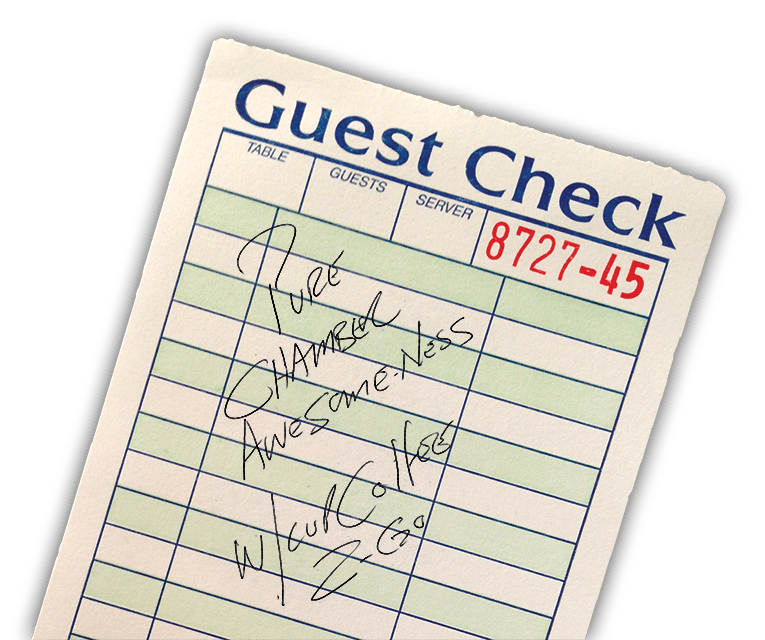 Guest Check
TABLE GUESTS SERVER 8727-45
PURE
CHAMBER
AWESOME-NESS
W/CUP COFFEE
2-GO